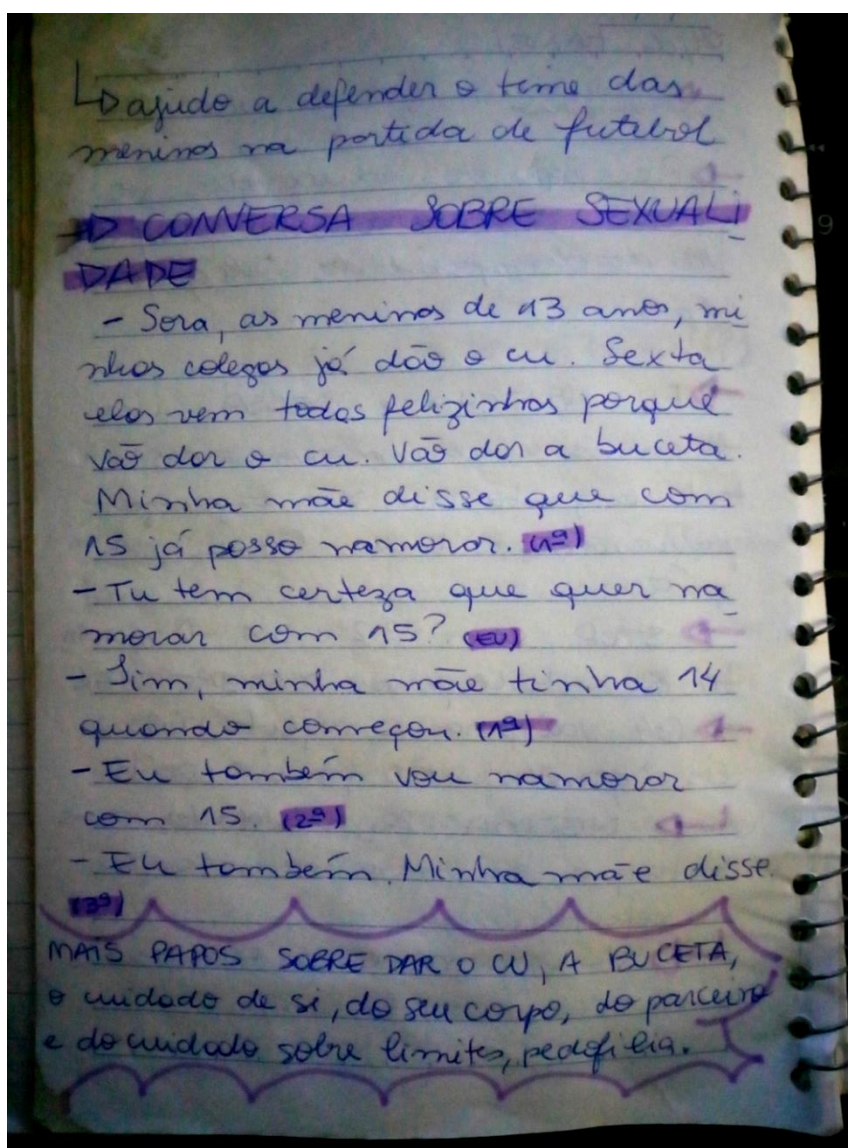 ↳ ajudo a defender o time das
meninas na partida de futebol
→ CONVERSA SOBRE SEXUALI
DADE
- Sora, as meninas de 13 anos, mi
nhas colegas já dão o cu. Sexta
elas vem todas felizinhas porque
vão dar o cu. Vão dar a buceta.
Minha mãe disse que com
15 já posso namorar. (1ª)
- Tu tem certeza que quer na
morar com 15? (EU)
- Sim, minha mãe tinha 14
quando começou. (1ª)
- Eu também vou namorar
com 15. (2ª)
- Eu também. Minha mãe disse.
(3ª)
MAIS PAPOS SOBRE DAR O CU, A BUCETA,
o cuidado de si, do seu corpo, do parceiro
e do cuidado sobre limites, pedofilia.